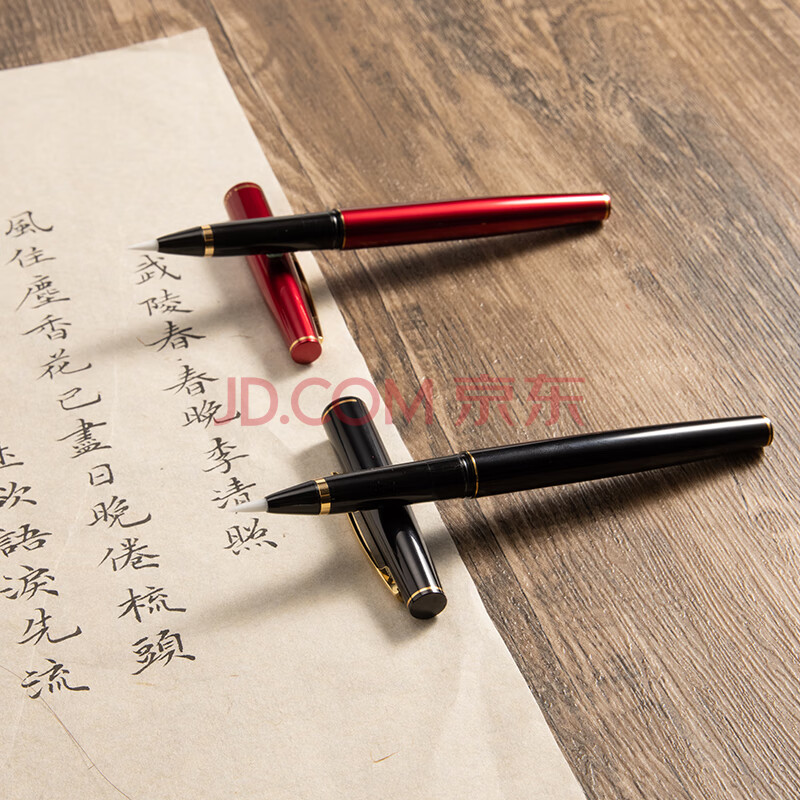 武陵春·春晚李清照
風住塵香花已盡日晚倦梳頭
欲語淚先流
JD.COM 京东